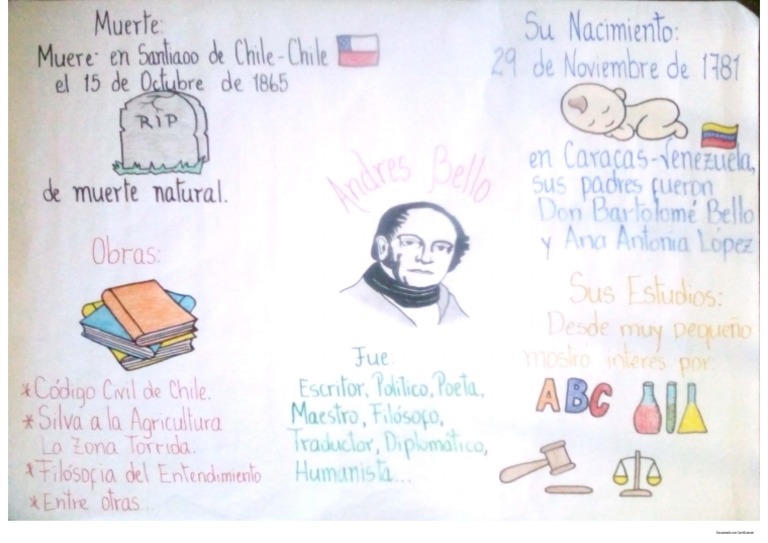 Muerte:
Muere en Santiago de Chile-Chile
el 15 de Octubre de 1865
RIP
de muerte natural.
Obras:
*Código Civil de Chile.
*Silva a la Agricultura
La Zona Torrida.
*Filósofia del Entendimiento
*Entre otras...
Andres Bello
Fue:
Escritor, Político, Poeta,
Maestro, Filósofo,
Traductor, Diplomático,
Humanista...
Su Nacimiento:
29 de Noviembre de 1781
en Caracas-Venezuela,
sus padres fueron
Don Bartolomé Bello
y Ana Antonia López
Sus Estudios:
Desde muy pequeño
mostró interes por:
ABC